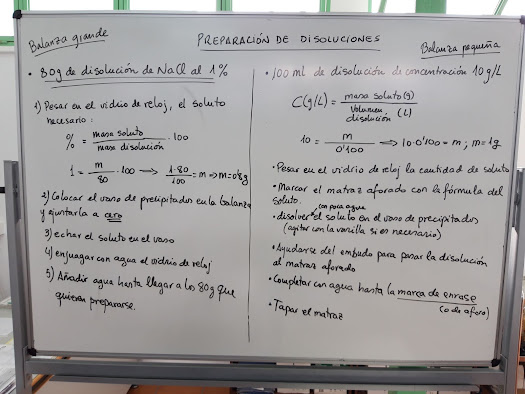 PREPARACIÓN DE DISOLUCIONES
Balanza grande
• 80g de disolución de NaCl al 1%
1) Pesar en el vidrio de reloj, el soluto
necesario:
% = masa soluto / masa disolución · 100
1 = m / 80 · 100 → 1·80 / 100 = m ⇒ m=0'8g
2) Colocar el vaso de precipitados en la balanza
y ajustarla a cero
3) echar el soluto en el vaso
4) enjuagar con agua el vidrio de reloj
5) Añadir agua hasta llegar a los 80g que
quieren prepararse.
Balanza pequeña
• 100 ml de disolución de concentración 10g/L
C(g/L) = masa soluto (g) / Volumen disolución (L)
10 = m / 0'100 ⇒ 10·0'100 = m ; m=1g
• Pesar en el vidrio de reloj la cantidad de soluto
• Marcar el matraz aforado con la fórmula del
soluto.
con poca agua
• disolver el soluto en el vaso de precipitados
(agitar con la varilla si es necesario)
• Ayudarse del embudo para pasar la disolución
al matraz aforado
• Completar con agua hasta la marca de enrase
(o de aforo)
• Tapar el matraz